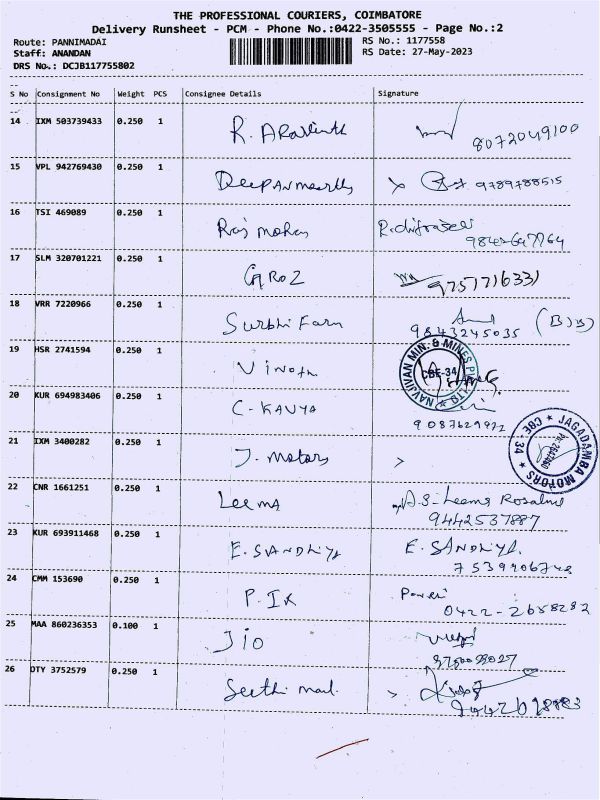 THE PROFESSIONAL COURIERS, COIMBATORE
Delivery Runsheet - PCM - Phone No.:0422-3505555 - Page No.:2
Route: PANNIMADAI RS No.: 1177558
Staff: ANANDAN RS Date: 27-May-2023
DRS No.: DCJB117755802
S No Consignment No Weight PCS Consignee Details Signature
14 IXM 503739433 0.250 1 R. Aravinth
8072049100
15 VPL 942769430 0.250 1 9789788515
16 TSI 469089 0.250 1 Raj mohan
17 SLM 320701221 0.250 1 GROZ
9751716331
18 VRR 7220966 0.250 1 Surbhi Farm
9843245035
19 HSR 2741594 0.250 1 Vinoth
NAVJIVAN MIN. & MINES PVT LTD
CBE-34
20 KUR 694983406 0.250 1 C-KAVYA
21 IXM 3400282 0.250 1 J. motors
JAGADAMBA MOTORS ★ CBE - 34 ★
22 CNR 1661251 0.250 1 Leema A.S-Leema
9442537887
23 KUR 693911468 0.250 1 E. SANDHIYA E. SANDHIYA.
24 CMM 153690 0.250 1
0422-2658282
25 MAA 860236353 0.100 1 JIO
26 OTY 3752579 0.250 1